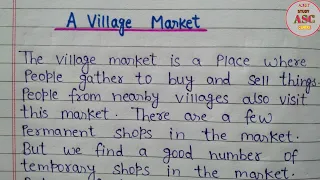 A Village Market
The village market is a Place where
People gather to buy and sell things.
People from nearby villages also visit
this market. There are a few
Permanent shops in the market.
But we find a good number of
temporary shops in the market.
STUDY
ASC